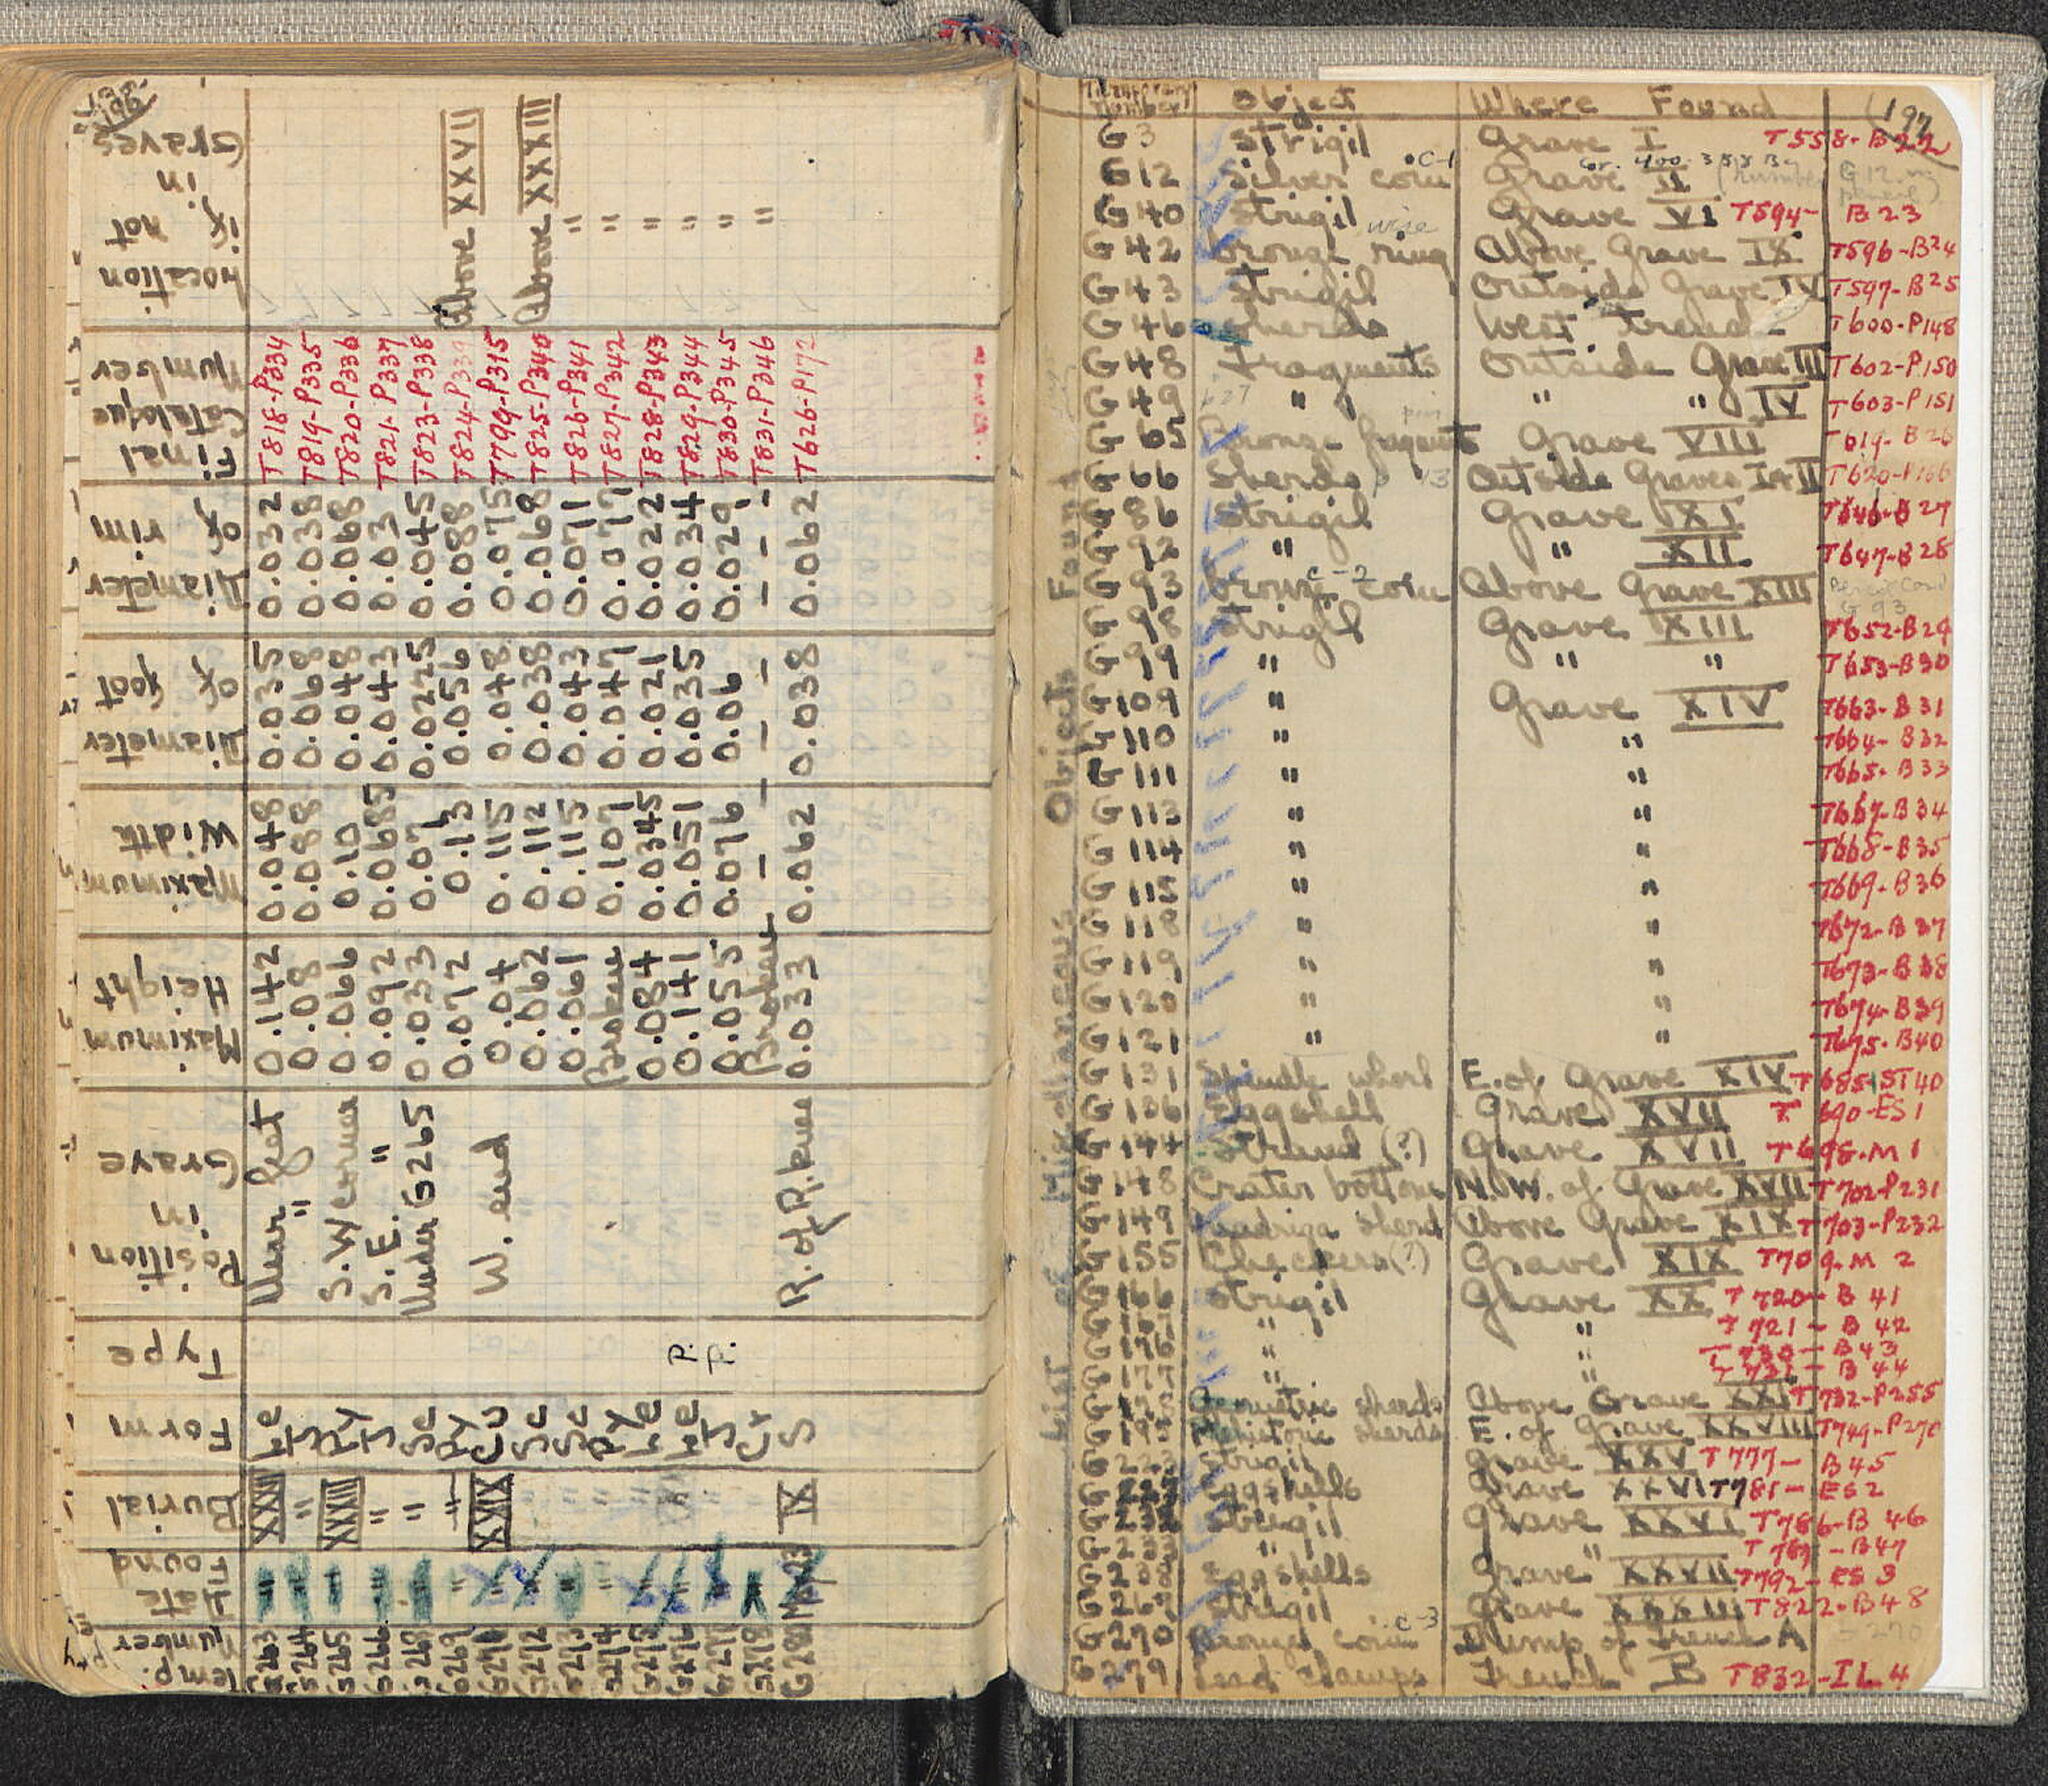 Temp. Number | Date Found | Burial | Form | Type | Position in Grave | Maximum Height | Maximum Width | Diameter of foot | Diameter of rim | Final Catalogue Number | Location if not in Graves
G263 " XXXII Near feet 0.142 0.048 0.035 0.032 T818-P334
G264 " " " 0.08 0.088 0.068 0.038 T819-P335
G265 " XXXIII Py S.W corner 0.066 0.10 0.048 0.068 T820-P336
G266 " " S.E. " 0.092 0.0685 0.043 0.03 T821-P337
G268 " " Under G265 0.033 0.07 0.0225 0.045 T823-P338
G269 " " Py 0.072 0.13 0.056 0.088 T824-P339 Above XXVII
G271 " XXIX W. end 0.04 0.115 0.048 0.075 T799-P315
G272 " 0.062 0.112 0.038 0.068 T825-P340 Above XXXIII
G273 " 0.061 0.115 0.043 0.071 T826-P341 "
G274 " Broken 0.107 0.047 0.077 T827-P342 "
G275 " 0.084 0.0345 0.021 0.022 T828-P343 "
G276 " P. 0.141 0.051 0.035 0.034 T829-P344 "
G277 " P. 0.055 0.076 0.06 0.029 T830-P345 "
G278 " Broken — — — T831-P346 "
G281 IX S R. of R. knee 0.033 0.062 0.038 0.062 T626-P172
197
List of Miscellaneous Objects Found
Temporary Number | Object | Where Found
G3 Strigil Grave I T558-B22
G12 Silver coin C-1 Grave II
G40 Strigil Grave VI T594-B23
G42 bronze ring Above Grave IX T596-B24
G43 Strigil Outside Grave IV T597-B25
G46 Sherds West Trench T600-P148
G48 fragments Outside Grave III T602-P150
G49 " " " IV T603-P151
G65 Bronze fragments Grave VIII T619-B26
G66 Sherds Outside Graves I & II T620-P166
G86 Strigil Grave XI T646-B27
G92 " " XII T647-B28
G93 bronze coin C-2 Above Grave XIII
G98 Strigil Grave XIII T652-B29
G99 " " " T653-B30
G109 " Grave XIV T663-B31
G110 " " T664-B32
G111 " " T665-B33
G113 " " T667-B34
G114 " " T668-B35
G115 " " T669-B36
G118 " " T672-B37
G119 " " T673-B38
G120 " " T674-B39
G121 " " T675-B40
G131 Spindle whorl E. of Grave XIV T685-ST40
G136 Eggshell Grave XVII T690-ES1
G144 Strand (?) Grave XVII T698-M1
G148 Crater bottom N.W. of Grave XVII T702-P231
G149 Quadriga sherd Above Grave XIX T703-P232
G155 Checkers(?) Grave XIX T709-M2
G166 Strigil Grave XX T720-B41
G167 " " T721-B42
G176 " " T730-B43
G177 " " T731-B44
Geometric sherds Above Grave XXI T732-P255
Prehistoric sherds E. of Grave XXVIII T749-P270
G223 Strigil Grave XXV T777-B45
Eggshells Grave XXVI T781-ES2
Strigil Grave XXVI T786-B46
" " B47
Eggshells Grave XXVII T792-ES3
G267 Strigil Grave XXXIII T822-B48
G270 Bronze coin C-3 Dump of Trench A
G279 Lead clamps Trench B T832-IL4